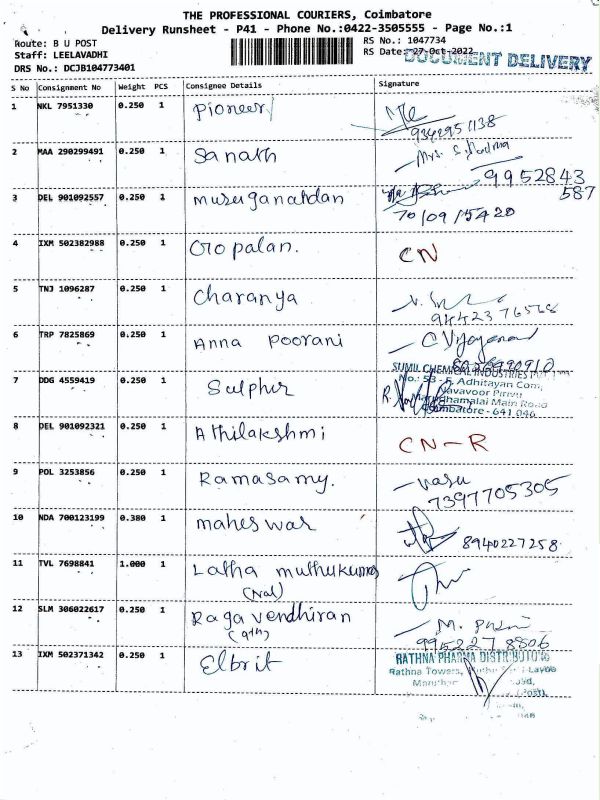 THE PROFESSIONAL COURIERS, Coimbatore
Delivery Runsheet - P41 - Phone No.:0422-3505555 - Page No.:1
Route: B U POST
RS No.: 1047734
Staff: LEELAVADHI
RS Date: 27-Oct-2022
DOCUMENT DELIVERY
DRS No.: DCJB104773401
S No Consignment No Weight PCS Consignee Details Signature
1 NKL 7951330 0.250 1 Pioneer
9342951138
2 MAA 290299491 0.250 1 Sanath Mrs. S.
9952843
587
3 DEL 901092557 0.250 1 muruganandan
70/09/15420
4 IXM 502382988 0.250 1 Gopalan. CN
5 TNJ 1096287 0.250 1 Charanya
9442376568
6 TRP 7825869 0.250 1 Anna Poorani C Vijayanand
7 DDG 4559419 0.250 1 Sulphur
SUMIL CHEMICAL INDUSTRIES
No.: 53 - F, Adhitayan Com,
Main Road
Coimbatore - 641 046
8 DEL 901092321 0.250 1 Athilakshmi CN-R
9 POL 3253856 0.250 1 Ramasamy. Vasu
7397705305
10 NDA 700123199 0.380 1 maheswar
8940227258
11 TVL 7698841 1.000 1 Latha muthukumar
12 SLM 306022617 0.250 1 Ragavendhiran M.
9952278806
13 IXM 502371342 0.250 1 Elbrit
RATHNA PHARMA DISTRIBUTORS
Rathna Towers, Layout